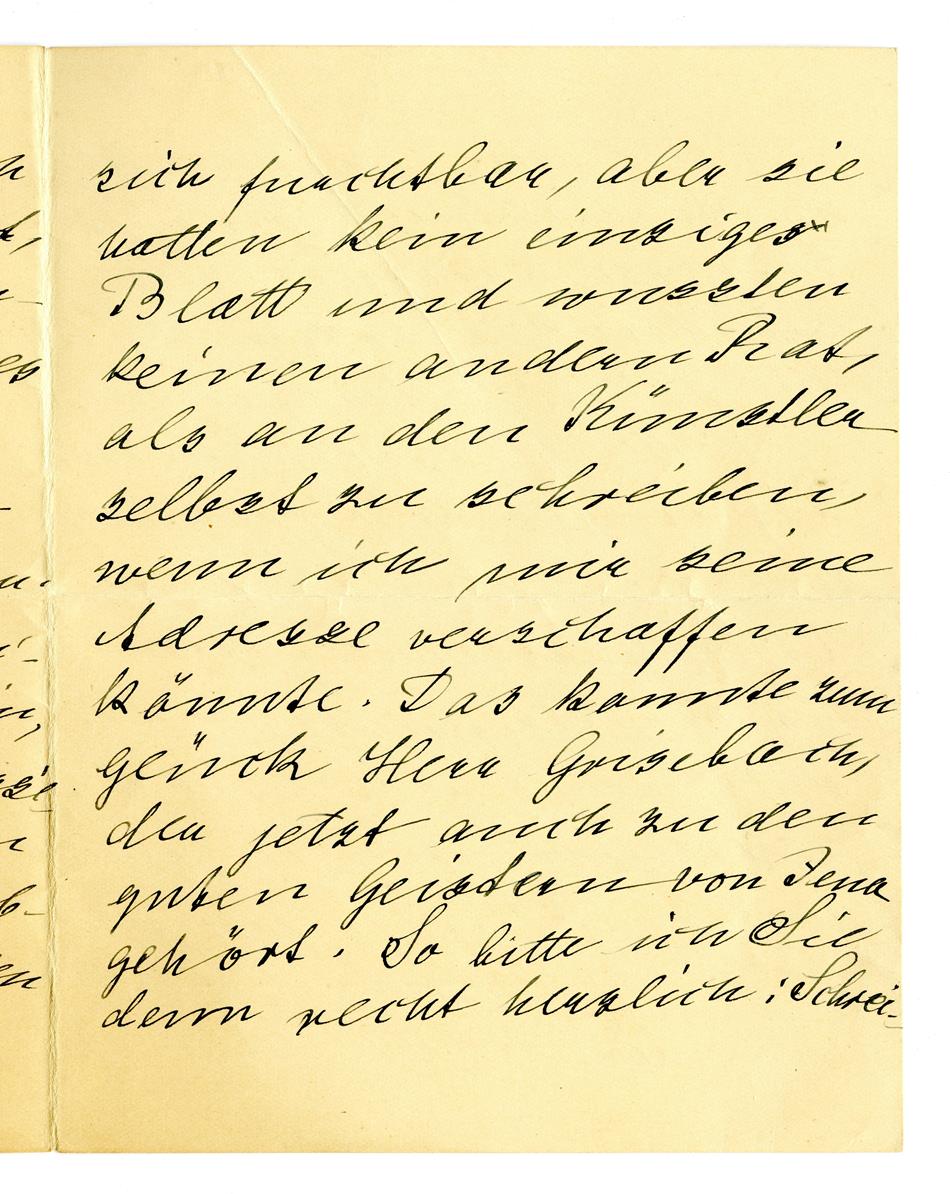 sich furchtbar, aber sie
hatten kein einziges
Blatt und wussten
keinen andern Rat,
als an den Künstler
selbst zu schreiben,
wenn ich mir seine
Adresse verschaffen
könnte. Das konnte zum
glück Herr Grisebach,
der jetzt auch zu den
guten Geistern von Jena
gehört. So bitte ich Sie
denn recht herzlich: Schrei-